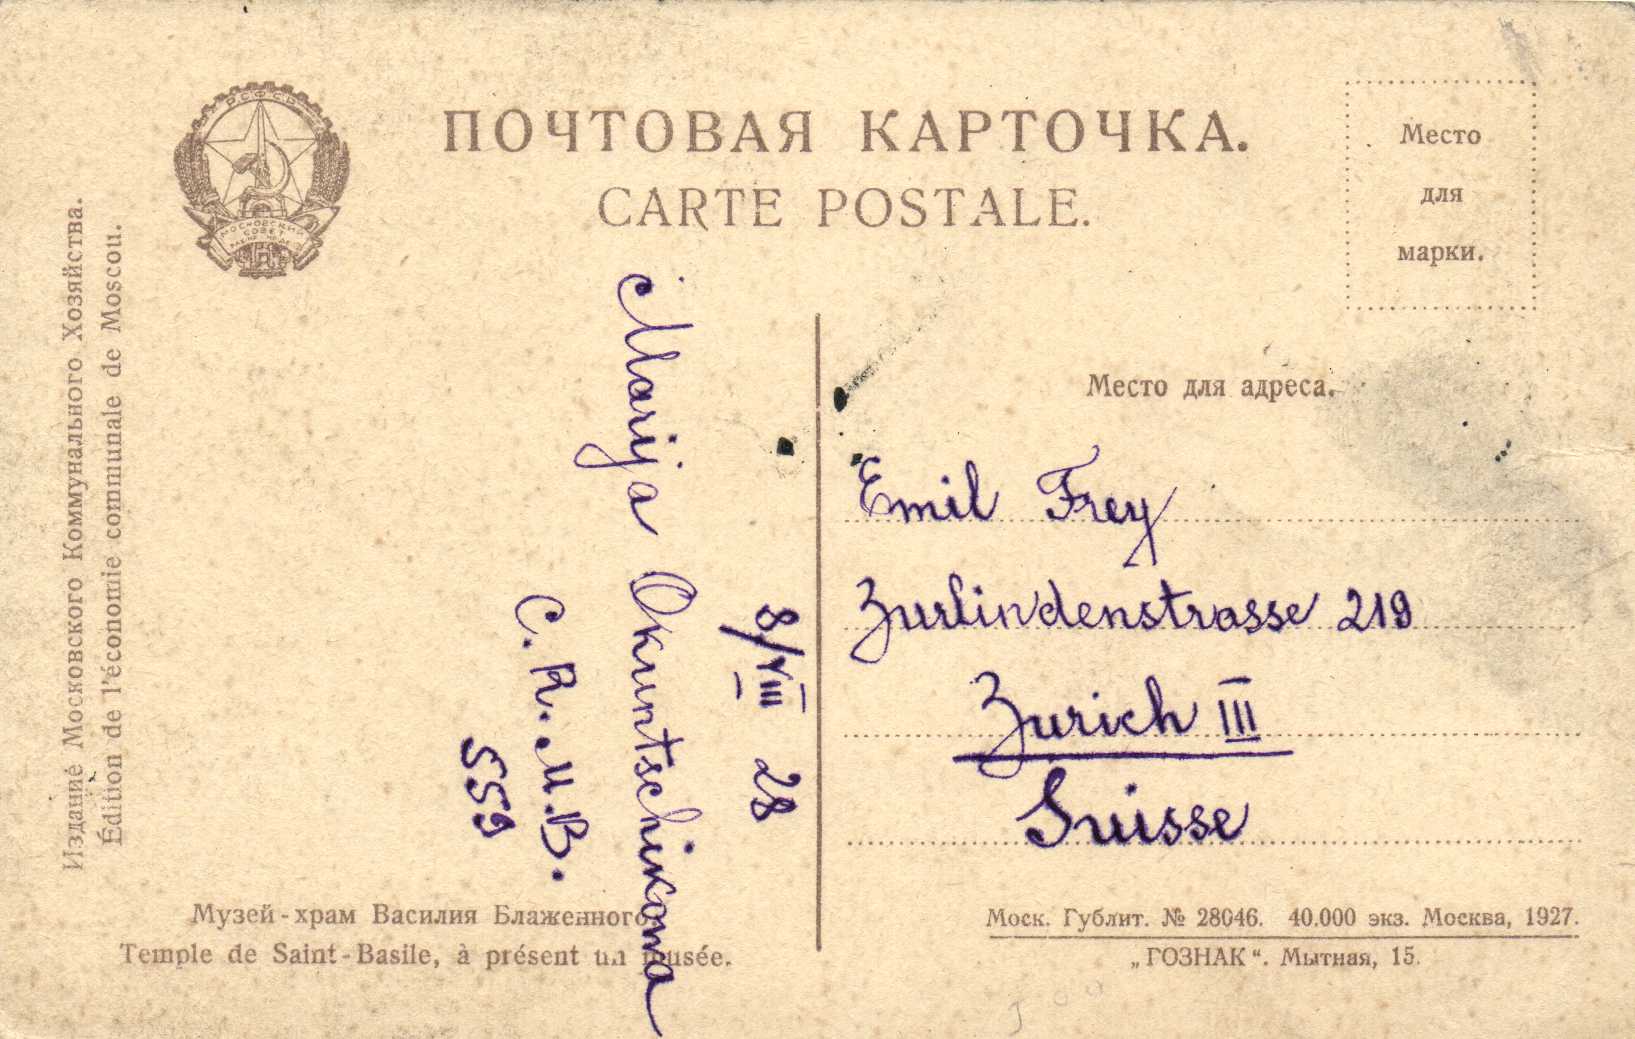 Р.С.Ф.С.Р.
МОСКОВСКИЙ
СОВЕТ
ПОЧТОВАЯ КАРТОЧКА.
CARTE POSTALE.
Место
для
марки.
Издание Московского Коммунального Хозяйства.
Édition de l'économie communale de Moscou.
8/VIII 28
Marija Okuntschikowa
C. R. M. B.
559
Место для адреса.
Emil Frey
Zurlindenstrasse 219
Zurich III
Suisse
Музей-храм Василия Блаженного.
Temple de Saint-Basile, à présent un musée.
Моск. Гублит. № 28046. 40.000 экз. Москва, 1927.
„ГОЗНАК“. Мытная, 15.